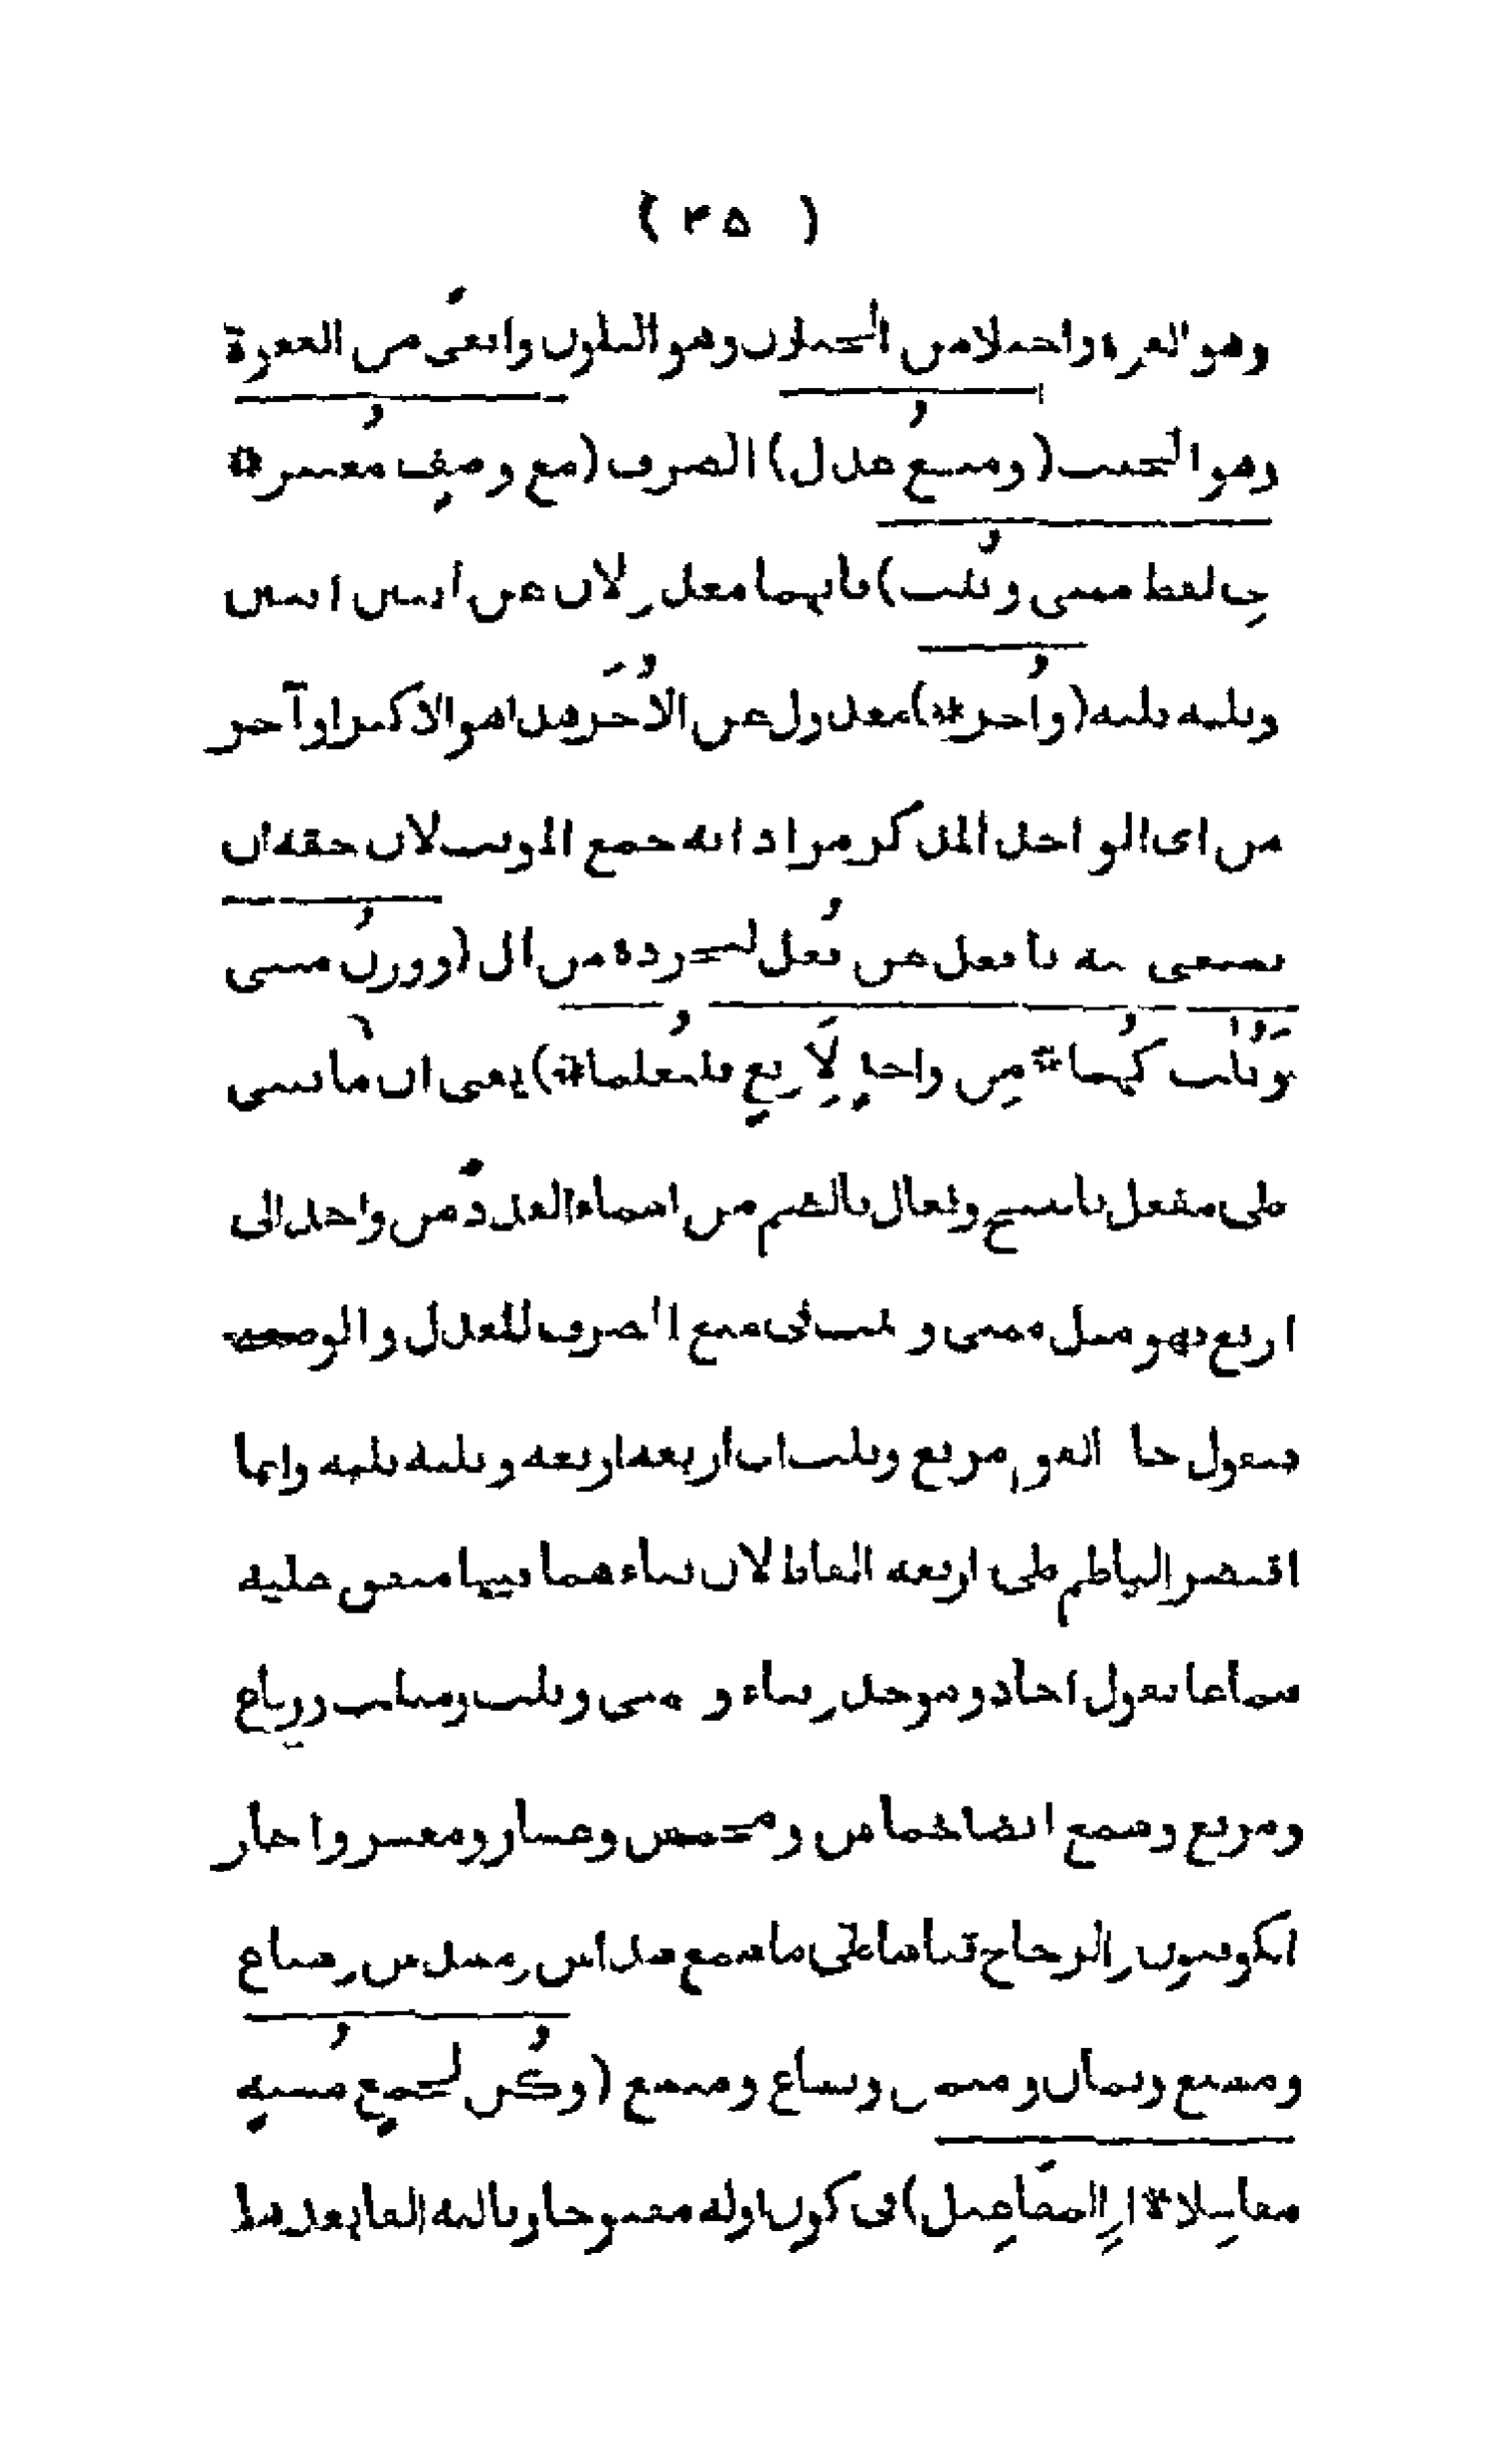 ( ٣٥ )
وهو القوة واخيلا من الخيلان وهو التلون وافعى من الفعوة
وهو الخبث (ومنع عدل) الصرف (مع وصف معتبر *
في لفظ مثنى وثلث) فانهما معدولان عن اثنين اثنين
وثلثة ثلثة (واُخر *) معدول عن الاُخَر هذا هو الاكثر او آخر
من اى الواحد المذكر مرادا به جمع المؤنث لان حقه ان
يستغنى فيه بافعل عن فُعل لتجرده من ال (ووزن مثنى
وثلث كهما * من واحد لاربع فليعلما *) يعنى ان ما بنى
على مفعل بالفتح وفعال بالضم من اسماء العدد من واحد الى
اربع فهو مثل مثنى وثلث فى منع الصرف للعدل والوصف
فتقول جاء القوم مربع وثلث اى اربعة اربعة وثلثة ثلثة وانما
اقتصر الناظم على اربعة الفاظ لان بناءهما فيها متفق عليه
سماعا تقول احاد وموحد وثناء ومثنى وثلث ومثلث ورباع
ومربع وسمع ايضا خماس ومخمس وعشار ومعشر واجاز
الكوفيون والزجاج قياسا على ما سمع سداس ومسدس وسباع
ومسبع وثمان ومثمن وتساع ومتسع (وكن لجمع مشبه
مفاعلا * او المفاعيل) فى كون اوله مفتوحا وثالثه الفا بعدها